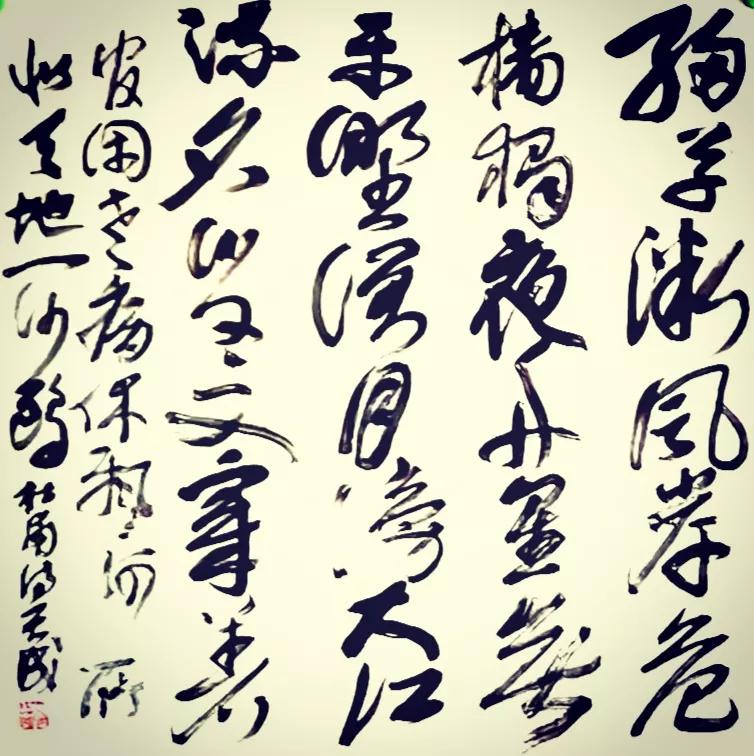 細草微風岸危
檣獨夜舟星垂
平野闊月湧大江
流名豈文章著
官因老病休飄々何所
似天地一沙鷗 杜甫詩